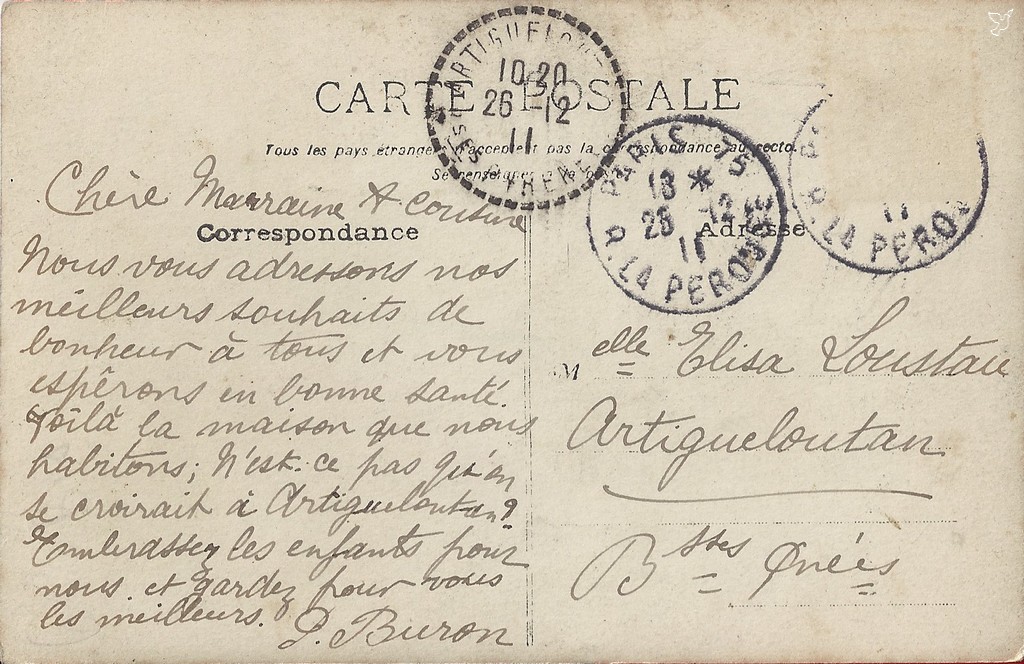 CARTE POSTALE
Tous les pays étrangers n'acceptent pas la correspondance au recto.
Se renseigner à la
Correspondance
Adresse
ARTIGUELOU
BSES PYRENEES
10 20
26 -12
11
PARIS 75
18 *
25 -12
11
R. LA PEROUSE
P
11
R. LA PEROU
Chère Marraine & cousine
Nous vous adressons nos
meilleurs souhaits de
bonheur à tous et vous
espérons en bonne santé.
Voilà la maison que nous
habitons; N'est-ce pas qu'on
se croirait à Artigueloutan?
Embrassez les enfants pour
nous et gardez pour vous
les meilleurs. P. Buron
Melle Elisa Loustau
Artigueloutan
Bsses Pnées